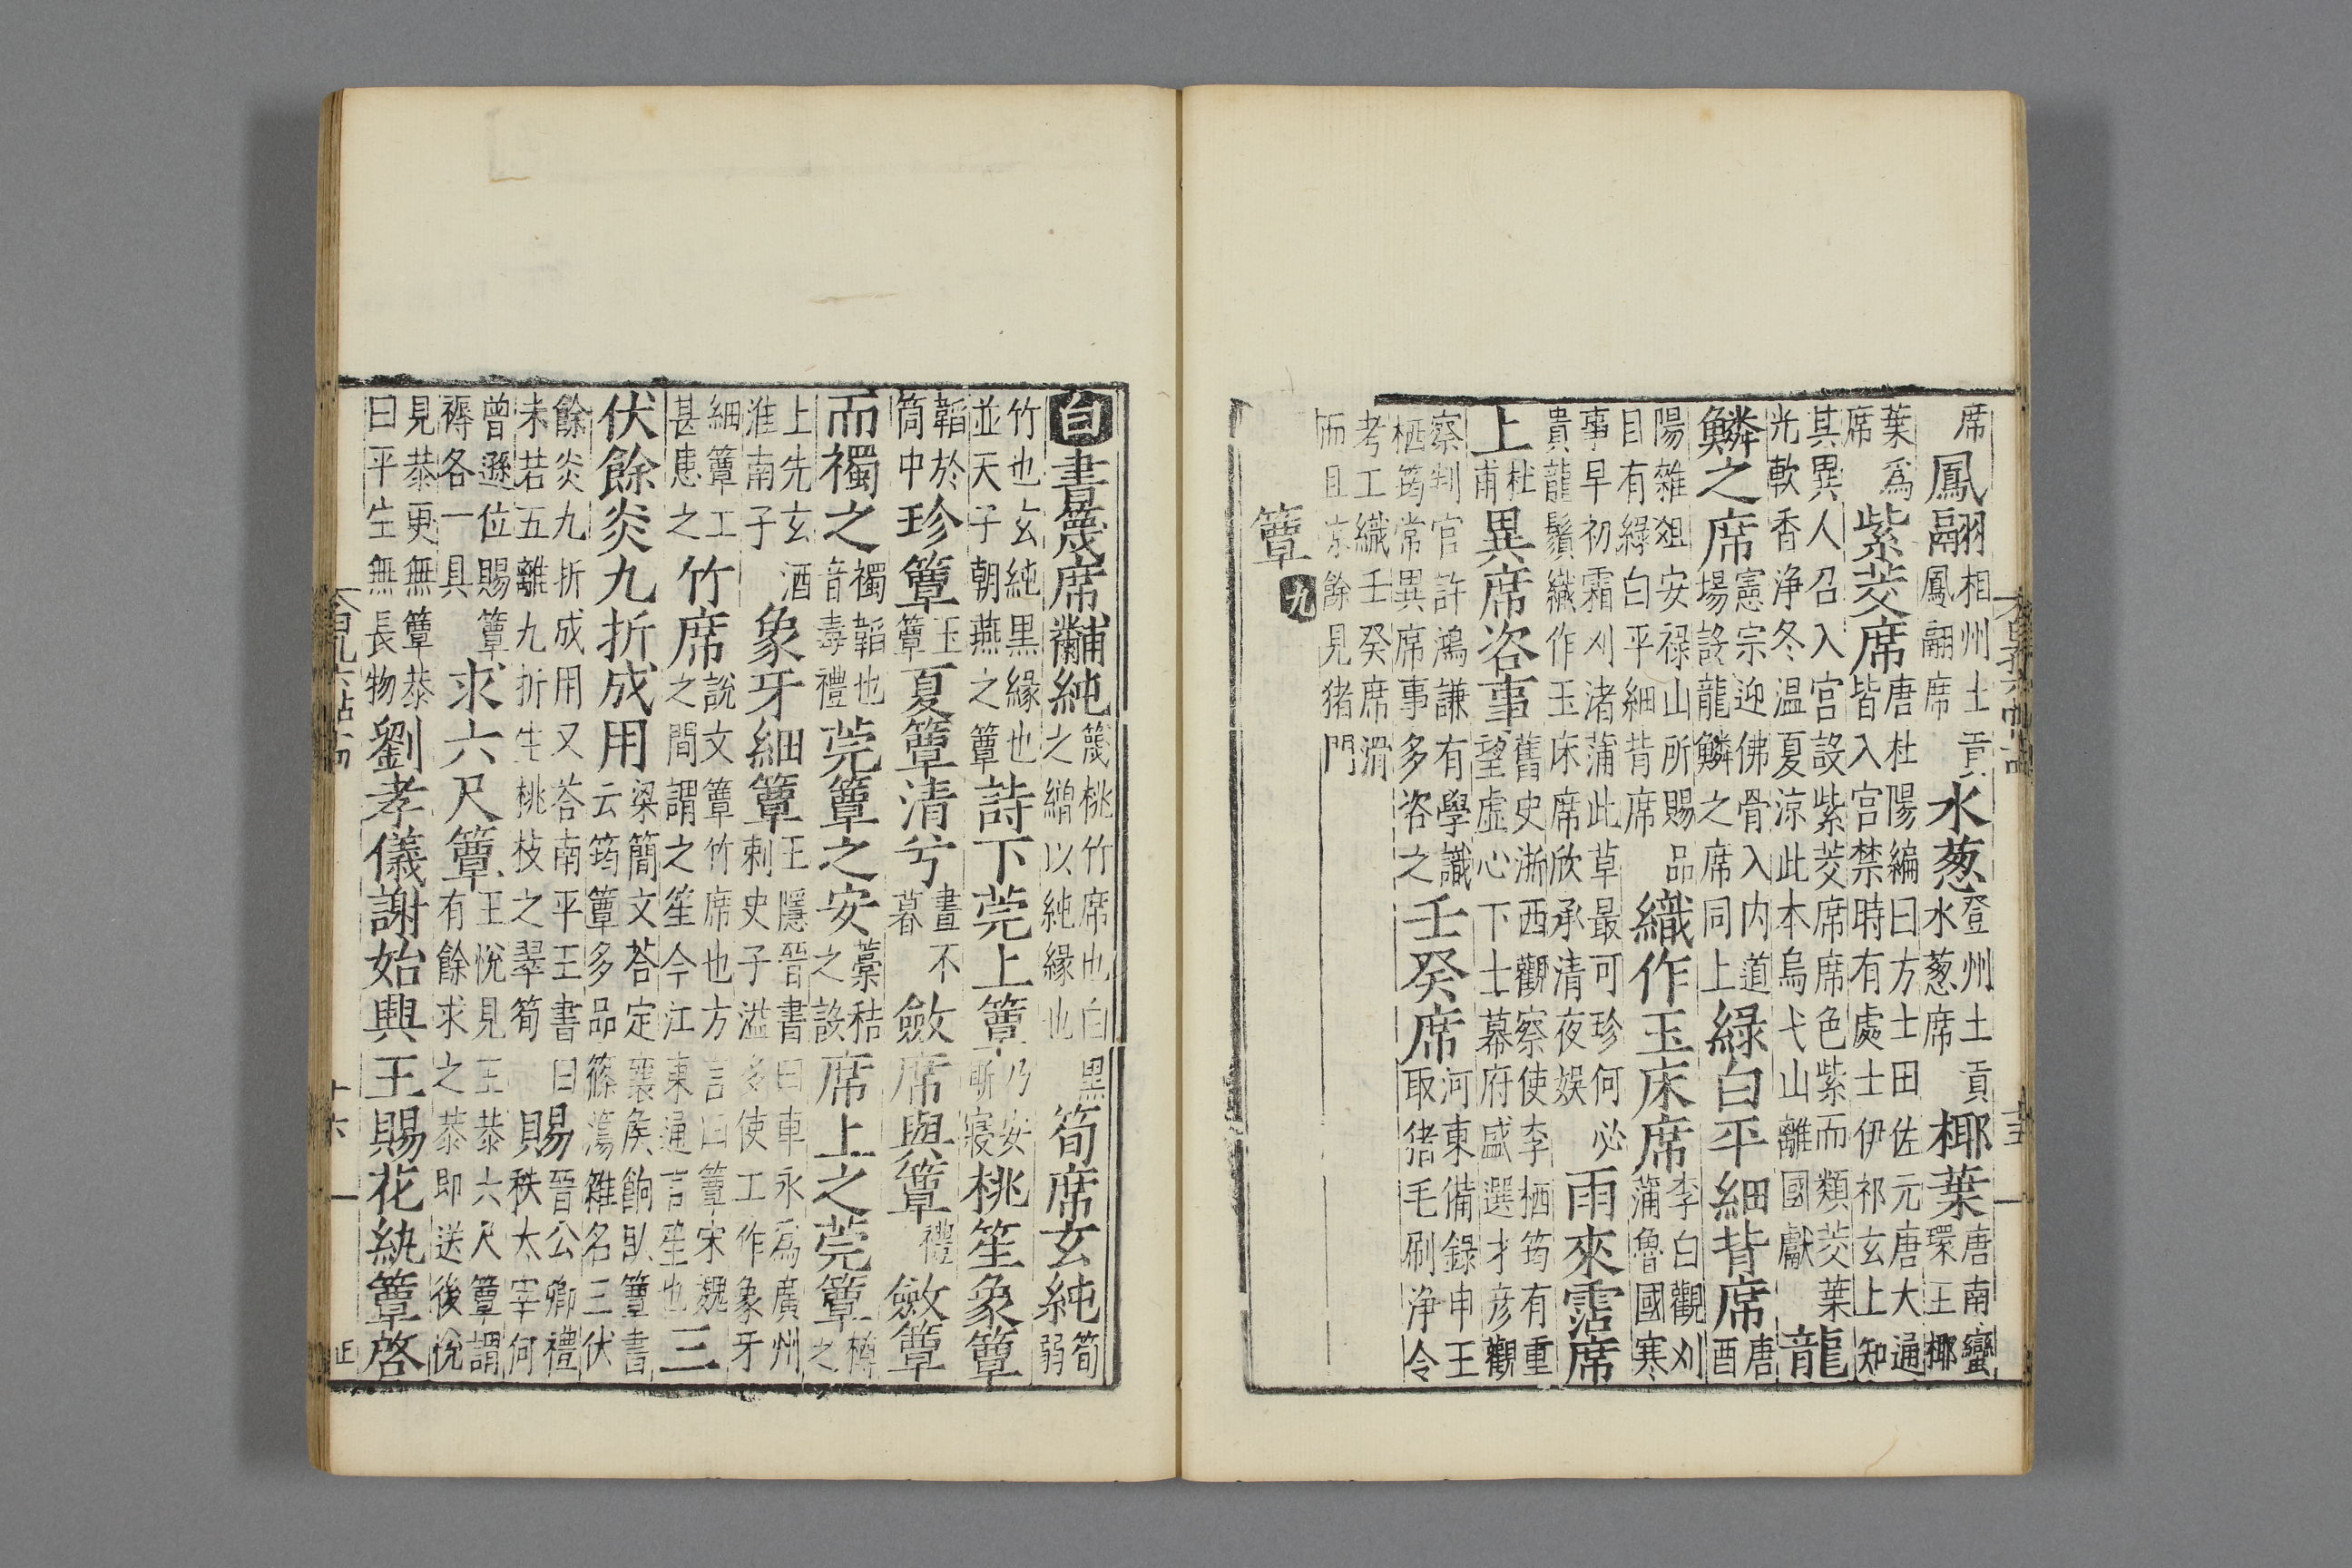 席鳳翮相州土貢鳳翮席水葱登州土貢水葱席椰葉唐南蠻環王椰
葉爲席紫茭席唐杜陽編曰方士田佐元唐大通皆入宫禁時有處士伊祁玄上知
其異人召入宫設紫茭席席色紫而類茭葉光軟香浄冬温夏涼此本烏弋山離國獻龍
鱗之席憲宗迎佛骨入内道場設龍鱗之席同上緑白平細背席唐酉
陽雜爼安禄山所賜品目有緑白平細背席織作玉床席李白觀刈蒲魯國寒
事早初霜刈渚蒲此草最可珍何必貴龍鬚織作玉床席欣承清夜娱雨來霑席
上杜甫異席咨事舊史浙西觀察使李栖筠有重望虚心下士幕府盛選才彦觀
察判官許鴻謙有學識栖筠常異席事多咨之壬癸席河東備録申王取猪毛刷浄令
考工織壬癸席滑而且凉餘見猪門
簟九
白書篾席黼純篾桃竹席也白黑之繒以純緣也筍席玄純筍弱
竹也玄純黒緣也並天子朝燕之簟詩下莞上簟乃安斯寢桃笙象簟
韜於筒中珍簟玉簟夏簟清兮晝不暮斂席與簟禮斂簟
而襡之襡韜也音毒禮莞簟之安藁秸之設席上之莞簟樽之
上先玄酒淮南子象牙細簟王隱晉書曰車永爲廣州刺史子溢多使工作象牙
細簟工甚患之竹席說文簟竹席也方言曰簟宋魏之間謂之笙今江東通言笙也三
伏餘炎九折成用梁簡文荅定襄侯餉臥簟書云筠簟多品篠簜雜名三伏
餘炎九折成用又荅南平王書曰未若五離九折生桃枝之翠筍賜晉公卿禮秩太宰何
曾遜位賜簟褥各一具求六尺簟王悅見王㳟六尺簟謂有餘求之㳟即送後悅
見㳟更無簟㳟曰平生無長物劉孝儀謝始興王賜花紈簟啓